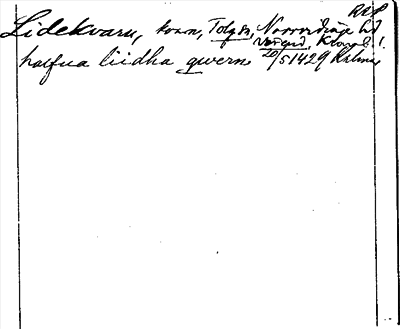 RAP
Lidekvarn, kvarn, Tolgs sn, Norrvidinge hd
Värend, Kronob. l.
halfua liidha qwern 20/5 1429 Kalmar